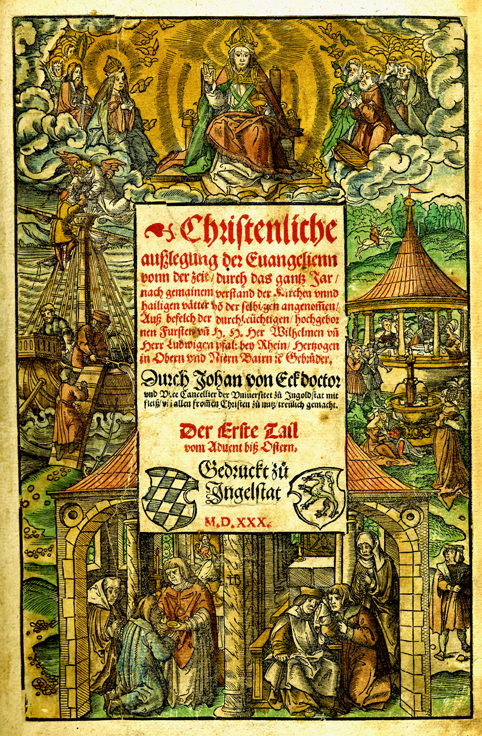 Christenliche
außlegung der Euangelienn
vonn der zeit / durch das gantz Jar /
nach gemainem verstand der Kirchen vnnd
hailigen väter võ der selbigen angenom̃en /
Auß befelch der durchleüchtigen / hochgebor
nen Fürsten vñ H. H. Her Wilhelmen vñ
Herr Ludwigen pfaltz: bey Rhein / Hertzogen
in Obern vnd Nidern Bairn ꝛc̃ Gebrüder.
Durch Johan von Eck doctor
vnd Vice Cancellier der Vniuersitet zů Ingoldstat mit
fleiß / allen from̃en Christen zů nutz / treülich gemacht.
Der Erste Tail
vom Aduent biß Ostern.
Gedruckt zů
Ingelstat
M.D.XXX.